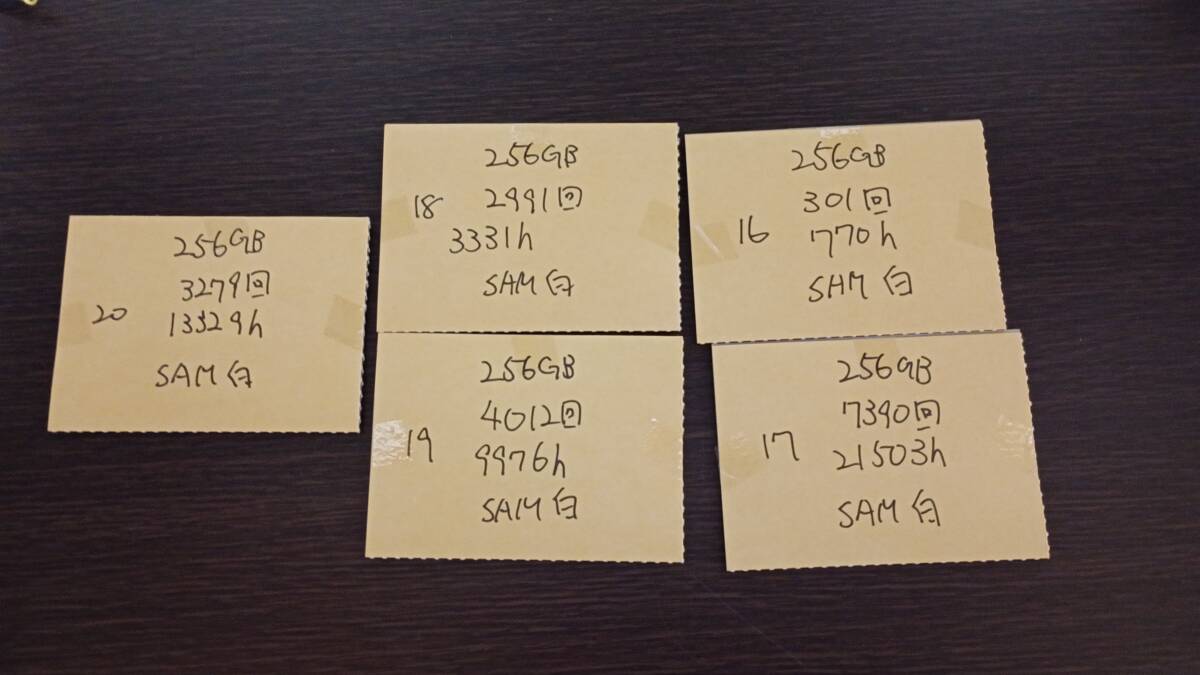 256GB
3279回
20
13329h
SAM 白
256GB
2991回
18
3331h
SAM 白
256GB
301回
16
1770h
SAM 白
256GB
4012回
19
9976h
SAM 白
256GB
7390回
17
21503h
SAM 白